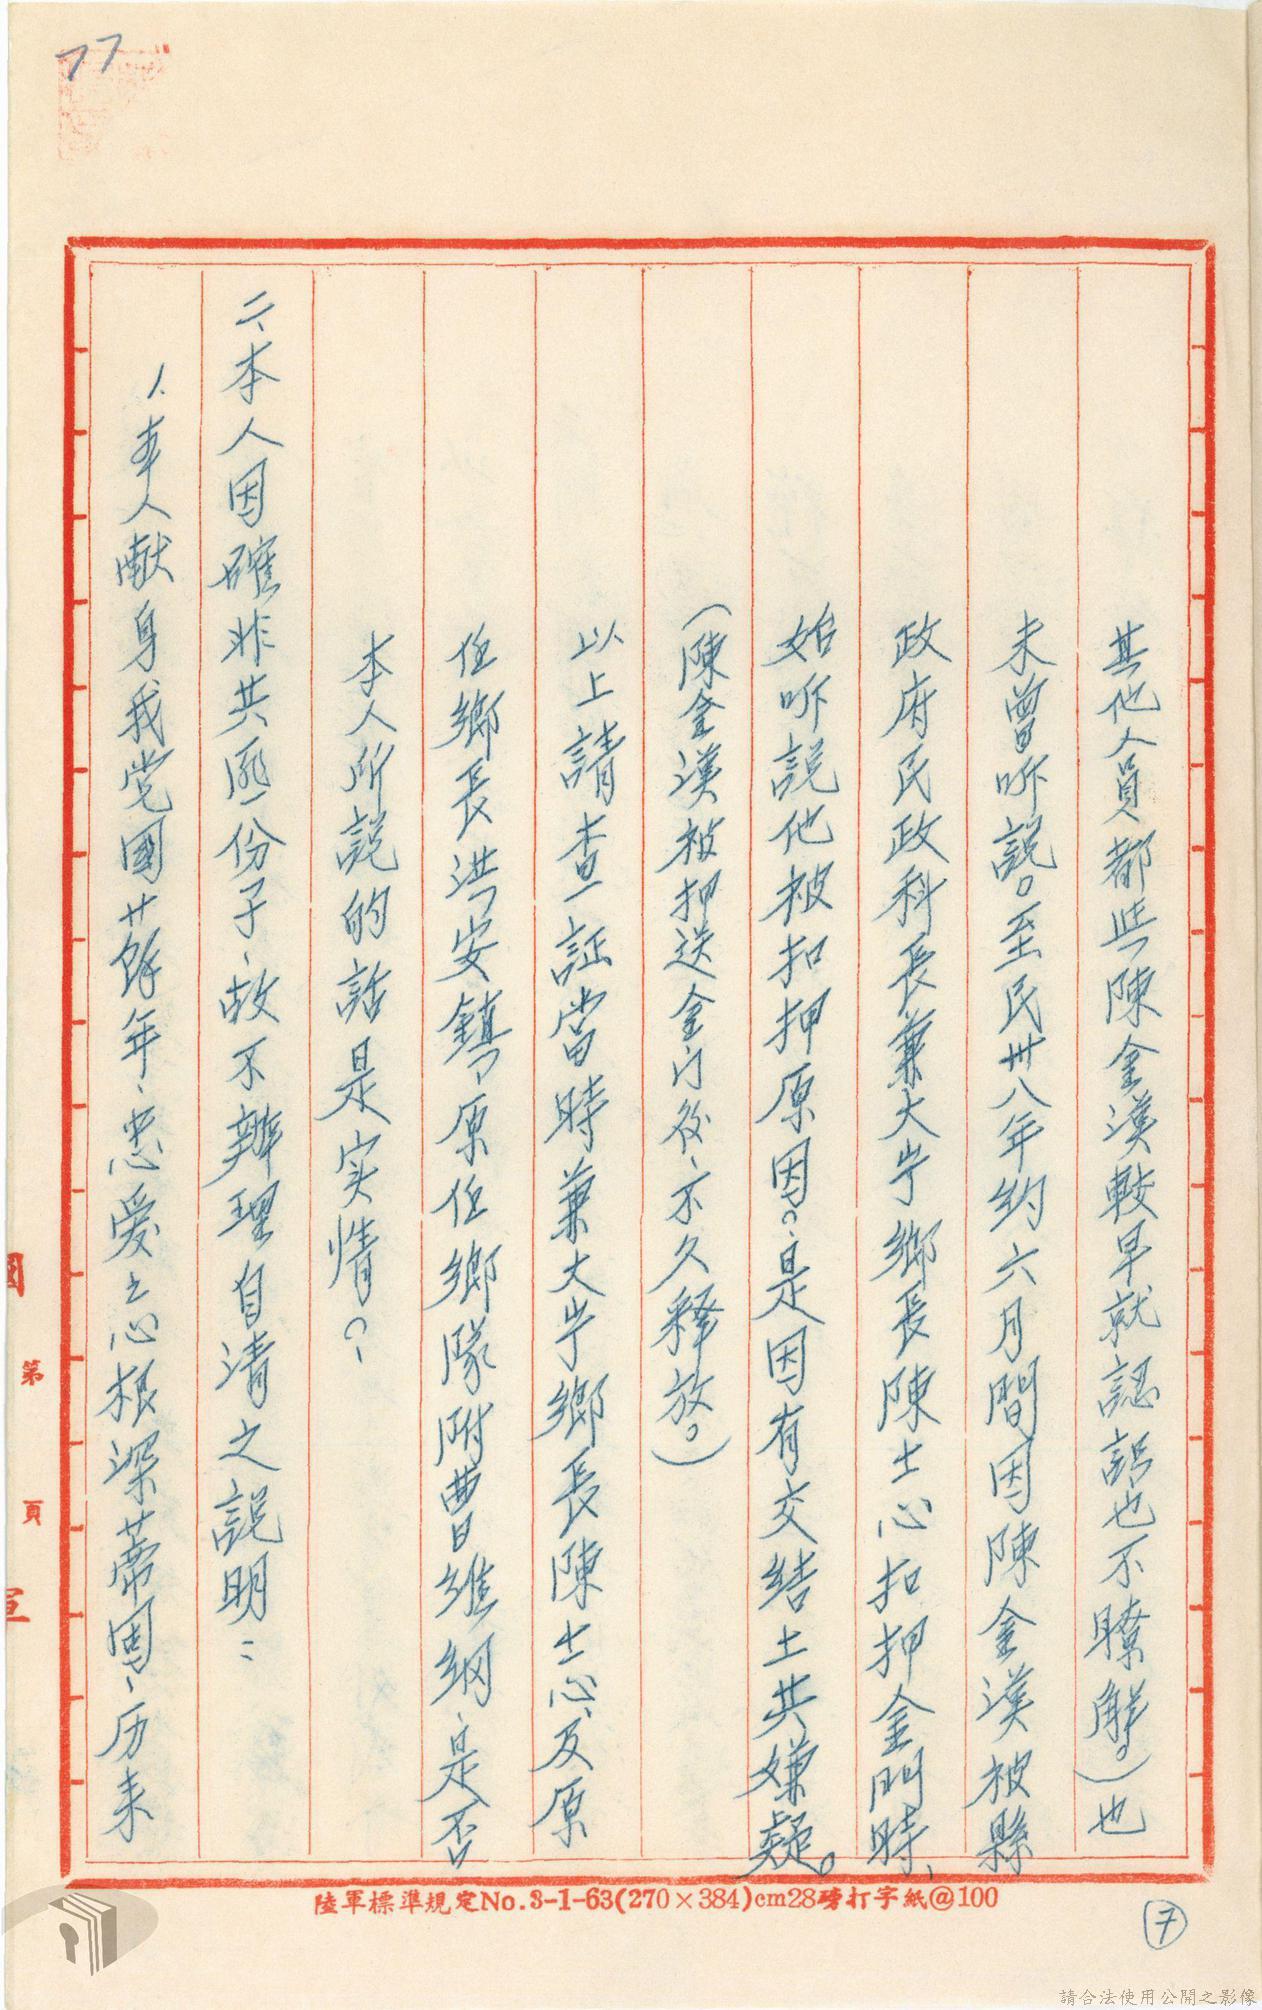 77
其他人員都些陳金漢較早就認識也不瞭解。)也
未曾听說。至民卅八年約六月間因陳金漢被縣
政府民政科長兼大宁鄉長陳士心扣押金門時、
始听說他被扣押原因。是因有交結土共嫌疑。
(陳金漢被押送金门後、不久释放。)
以上請查証當時兼大宁鄉長陳士心、及原
任鄉長洪安鎮、原任鄉隊附曹維纲、是否
本人所説的話是实情。
二、本人因確非共匪份子、故不辦理自清之說明：
1、本人献身我党國廿餘年、忠爱之心根深蒂固、历来
第 頁
陸軍標準規定No.3-1-63(270×384)cm28磅打字紙@100
7
請合法使用公開之影像